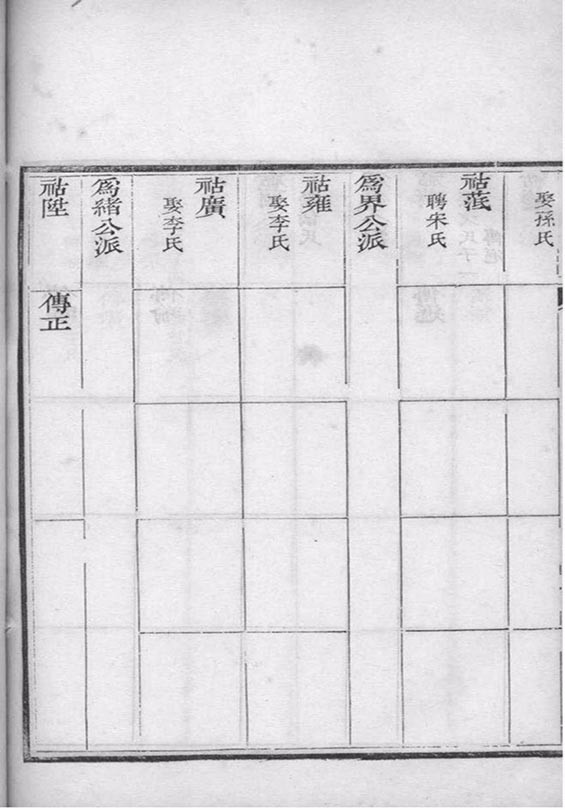 娶孫氏
祜菧
聘宋氏
爲界公派
祜雍
娶李氏
祜廣
娶李氏
爲緒公派
祜陞
傳正